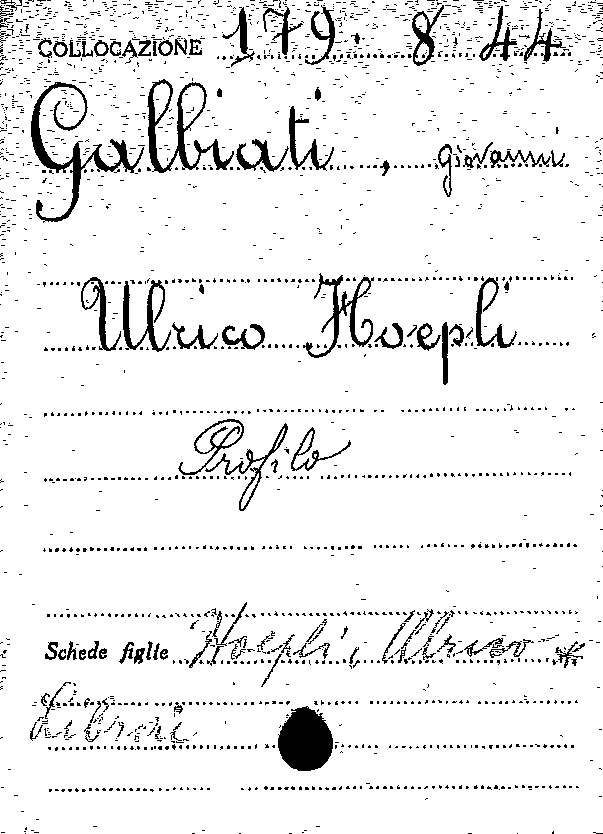 COLLOCAZIONE 179. 8. 44
Galbiati, giovanni
Ulrico Hoepli
Profilo
Schede figlie Hoepli, Ulrico *
Librai